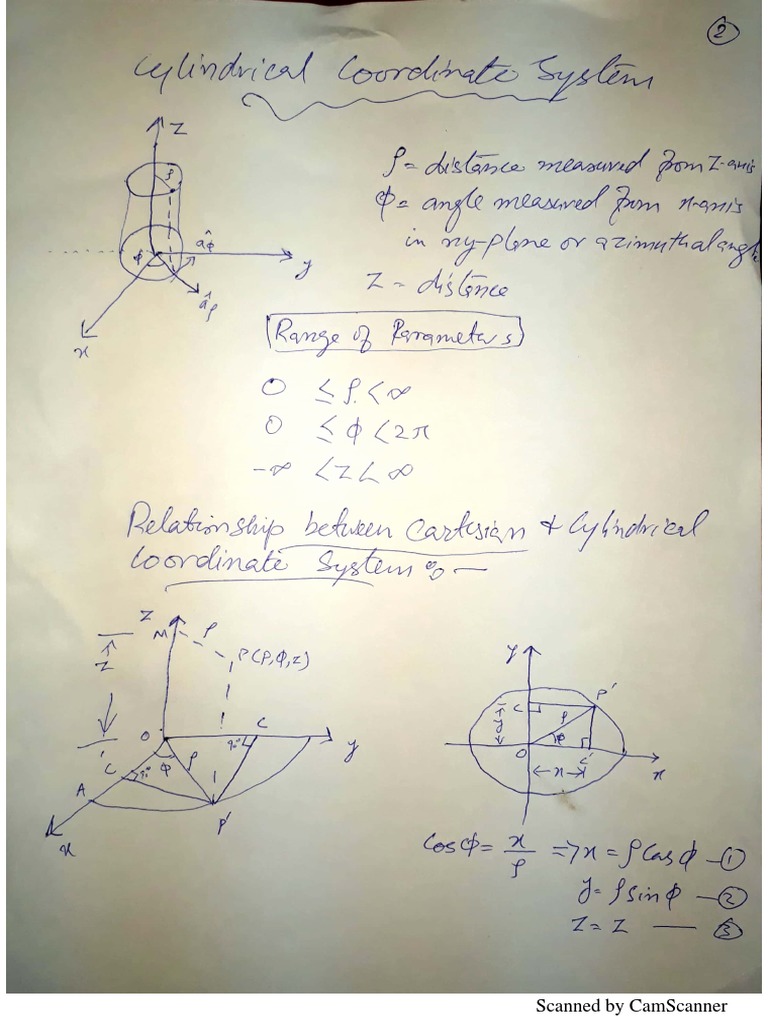 2
Cylindrical Coordinate System
Z
ρ
ρ = distance measured from Z-axis
ϕ = angle measured from x-axis
in xy-plane or azimuthal angle
Z = distance
ϕ
âϕ
y
âρ
x
Range of Parameters
0 ≤ ρ < ∞
0 ≤ ϕ < 2π
-∞ < Z < ∞
Relationship between Cartesian & Cylindrical
Coordinate System :—
Z
M
ρ
P(ρ, ϕ, z)
Z
O
C
y
90°
C'
90°
ϕ
ρ
A
P'
x
y
C
P'
ρ
y
ϕ
O
C'
x
x
Cosϕ = x/ρ ⇒ x = ρ Cosϕ — ①
y = ρ Sinϕ — ②
Z = Z — ③
Scanned by CamScanner